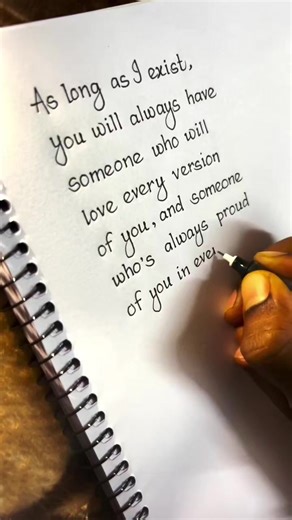 As long as I exist,
you will always have
someone who will
love every version
of you, and someone
who's always proud
of you in eve